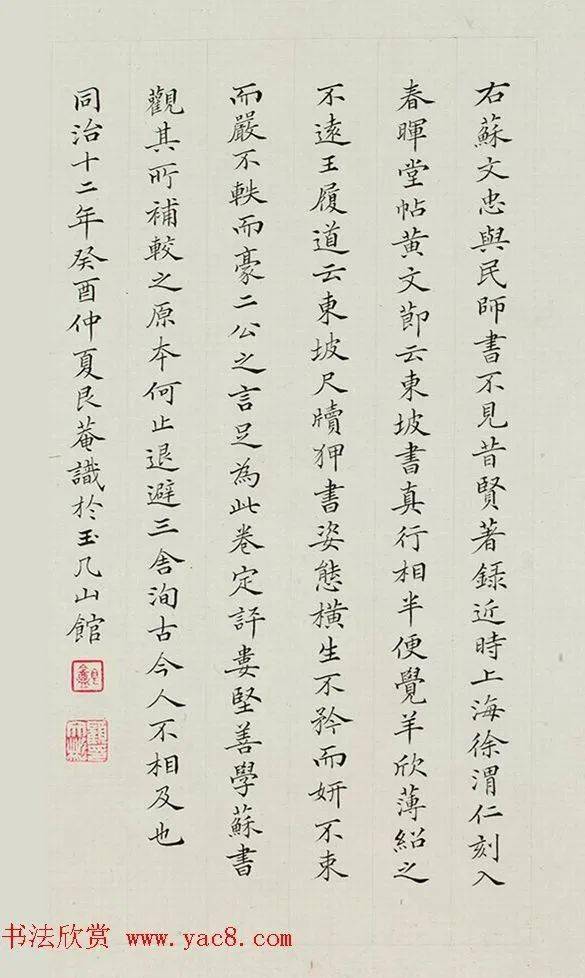 右蘇文忠與民師書不見昔賢著錄近時上海徐渭仁刻入
春暉堂帖黃文節云東坡書真行相半便覺羊欣薄紹之
不遠王履道云東坡尺牘狎書姿態橫生不矜而妍不束
而嚴不軼而豪二公之言足為此卷定評婁堅善學蘇書
觀其所補較之原本何止退避三舍洵古今人不相及也
同治十二年癸酉仲夏艮菴識於玉几山館
书法欣赏 www.yac8.com